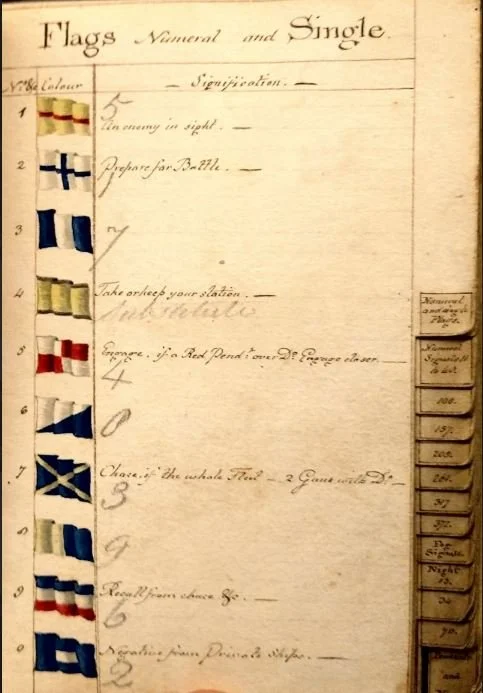 Flags Numeral and Single.
Nos & Colour Signification.
1 5
An enemy in sight.
2 Prepare for Battle.
1
3 7
4 Take or keep your station.
Substitute
5 Engage, if a Red Pendt over Do Engage closer.
4
6 0
7 Chace, if the whole Fleet 2 Guns with Do
3
8 9
9 Recall from chace &c.
6
0 Negative from Private Ships.
2
Numeral
and single
Flags.
Numeral
Signals
100.
157.
317
372.
Fog
Signals.
Night
70.
and